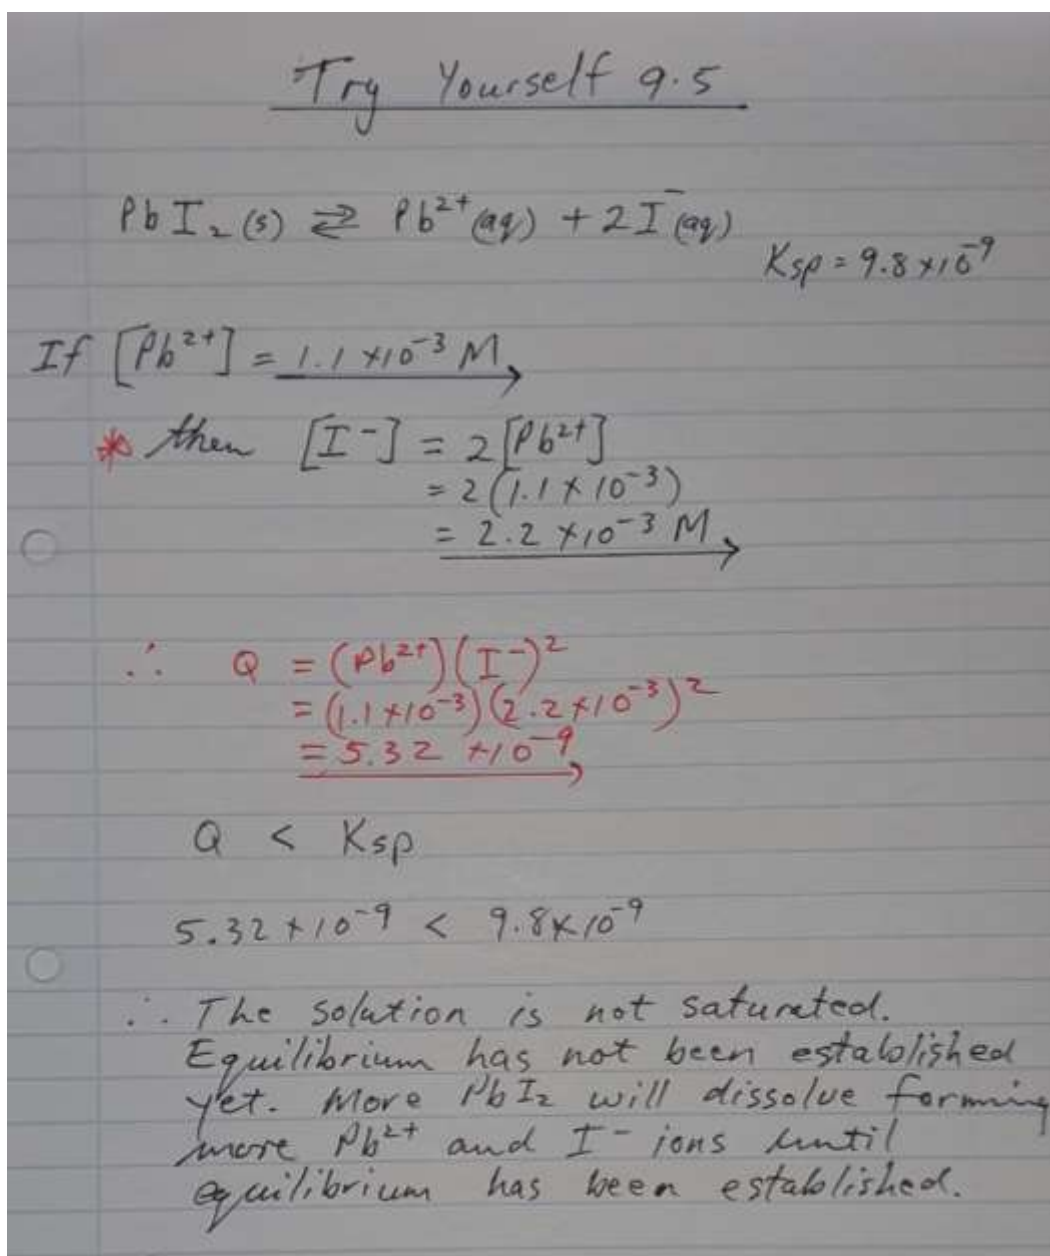 Try Yourself 9.5
PbI₂(s) ⇄ Pb²⁺(aq) + 2I⁻(aq)
Ksp = 9.8 × 10⁻⁹
If [Pb²⁺] = 1.1 × 10⁻³ M
* then [I⁻] = 2[Pb²⁺]
= 2(1.1 × 10⁻³)
= 2.2 × 10⁻³ M
∴ Q = (Pb²⁺)(I⁻)²
= (1.1 × 10⁻³)(2.2 × 10⁻³)²
= 5.32 × 10⁻⁹
Q < Ksp
5.32 × 10⁻⁹ < 9.8 × 10⁻⁹
∴ The solution is not saturated.
Equilibrium has not been established
yet. More PbI₂ will dissolve forming
more Pb²⁺ and I⁻ ions until
equilibrium has been established.